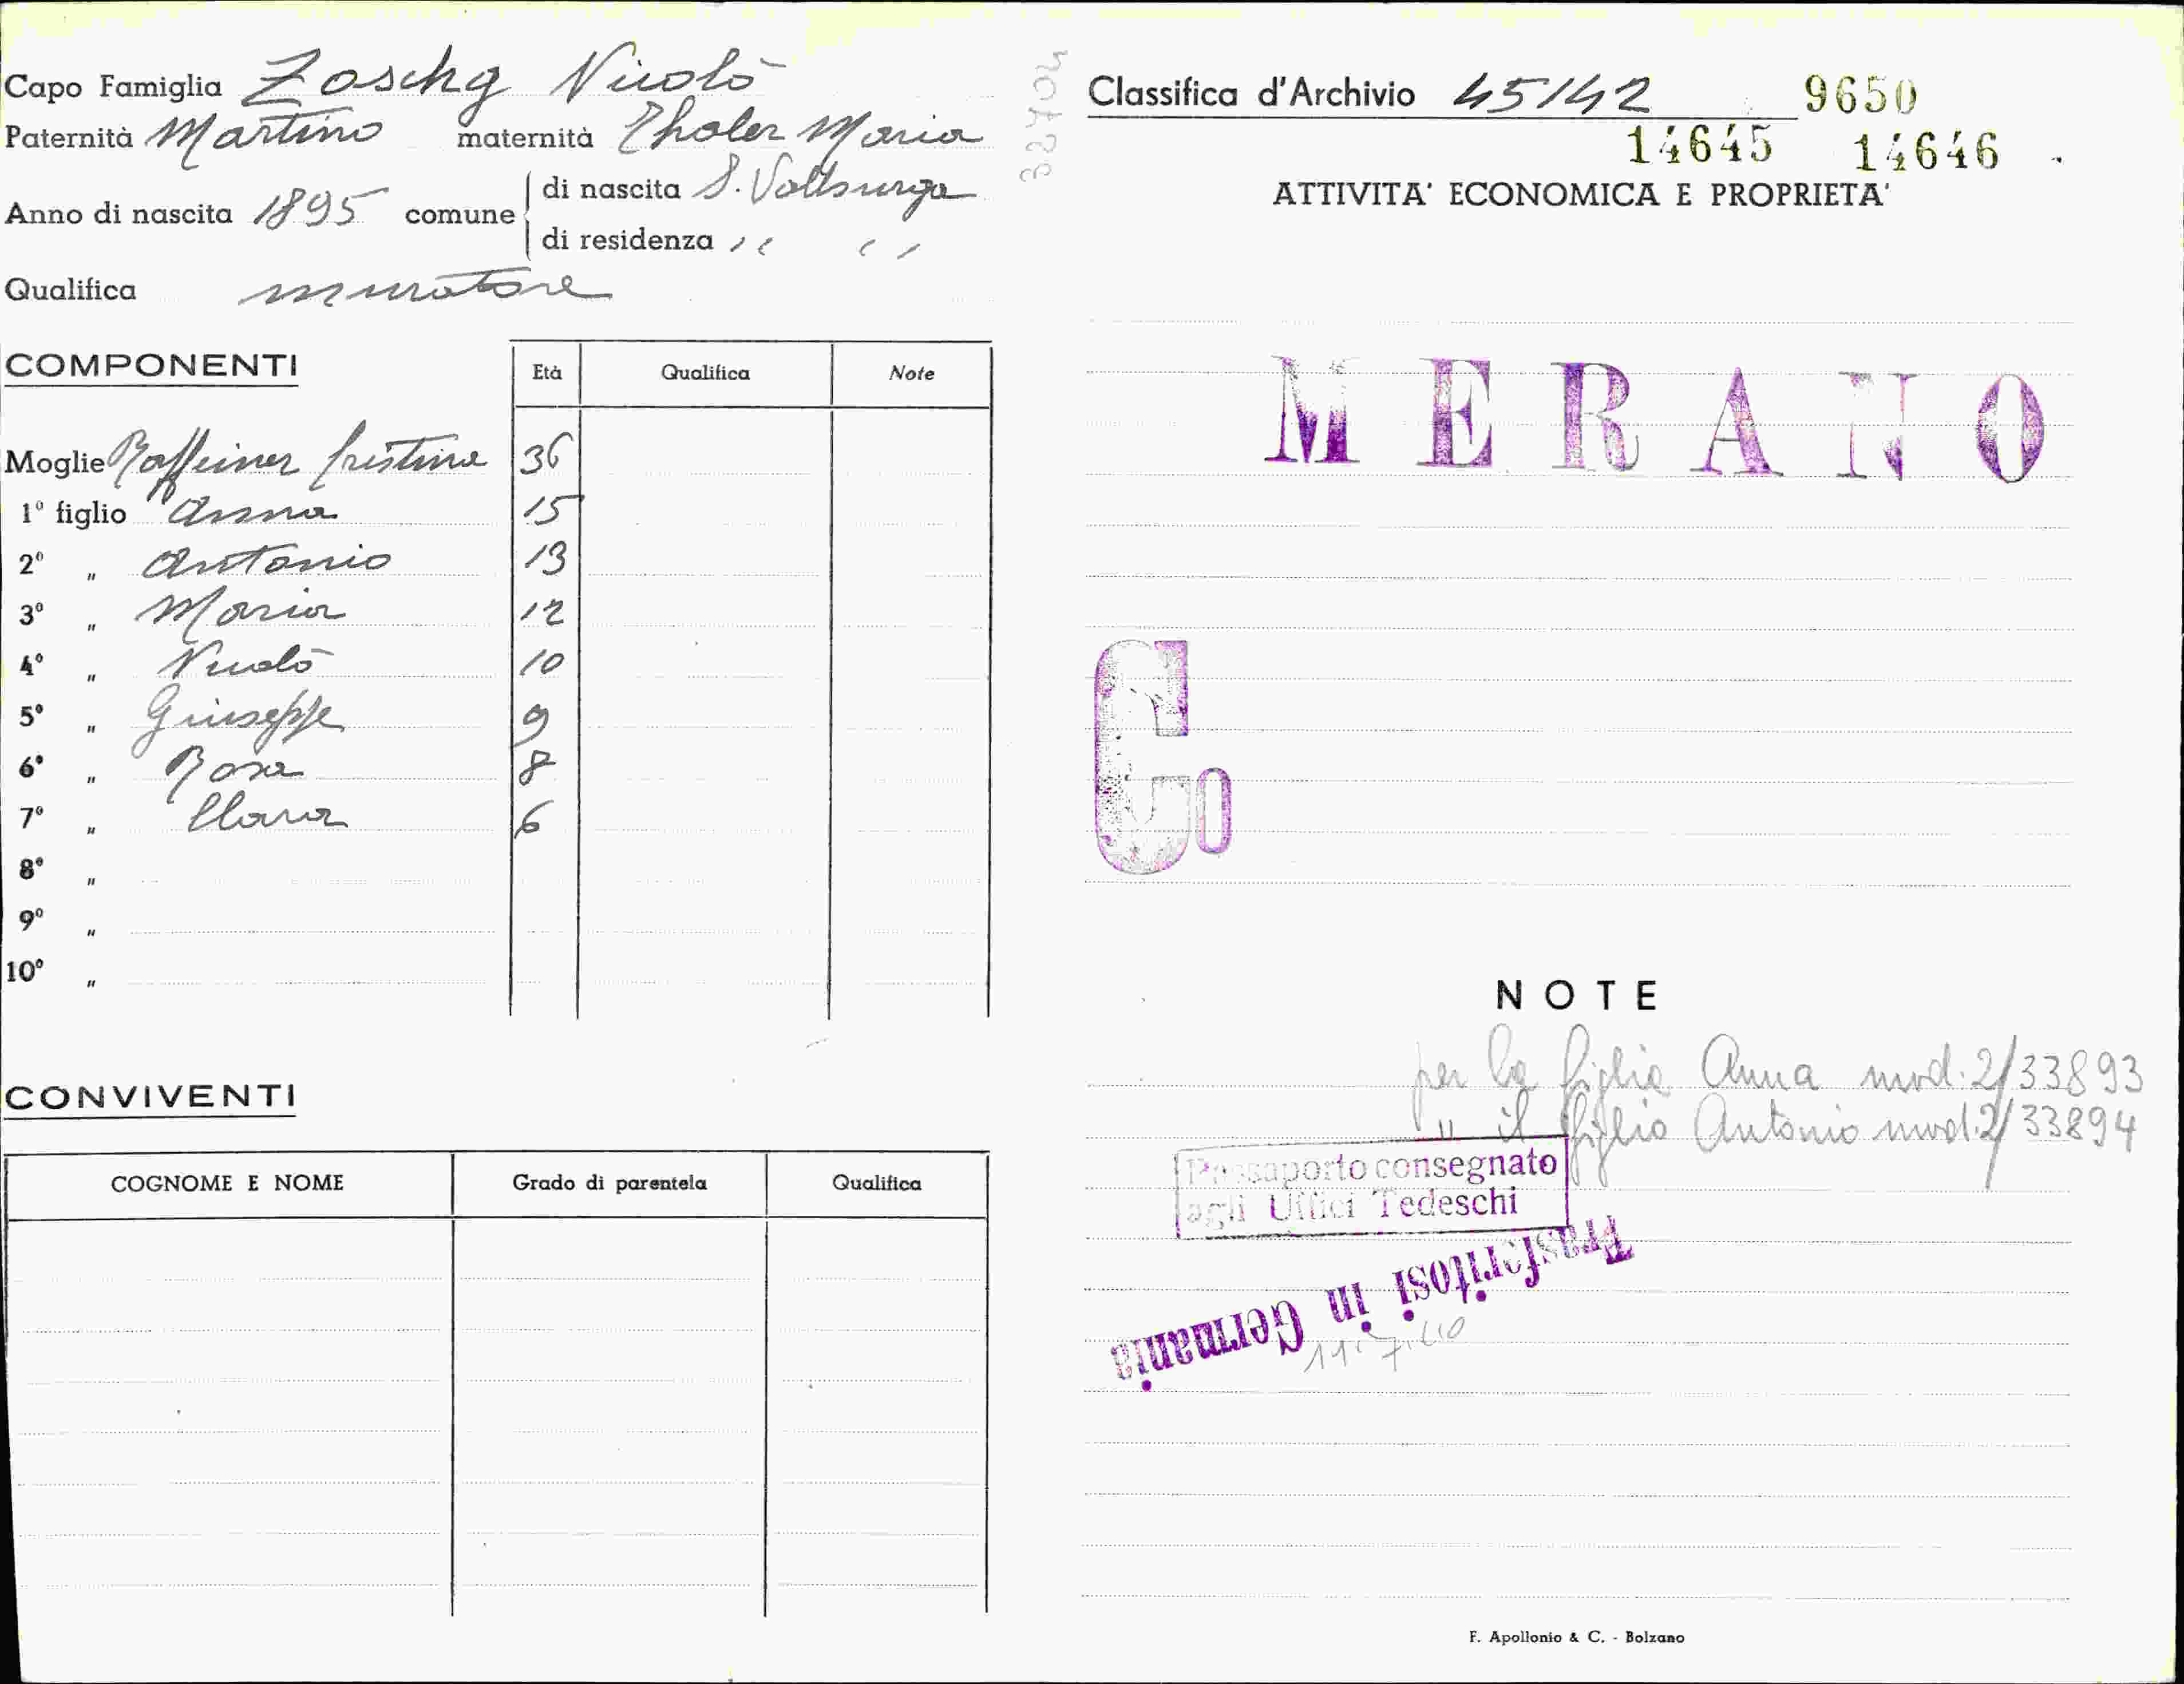 Capo Famiglia Zoschg Nicolò
Paternità Martino maternità Tholer Maria
Anno di nascita 1895 comune
di nascita S. Valburga
di residenza " "
Qualifica muratore
COMPONENTI
Età Qualifica Note
Moglie Raffeiner Cristina 36
1° figlio Anna 15
2° " Antonio 13
3° " Maria 12
4° " Nicolò 10
5° " Giuseppe 9
6° " Rosa 8
7° " Clara 6
8° "
9° "
10° "
CONVIVENTI
COGNOME E NOME Grado di parentela Qualifica
32704
Classifica d'Archivio 45142 9650
14645 14646
ATTIVITA' ECONOMICA E PROPRIETA'
MERANO
Co
NOTE
per la figlia Anna mod. 2/33893
" il figlio Antonio mod. 2/33894
Passaporto consegnato
agli Uffici Tedeschi
Trasferitosi in Germania
11.7.40
F. Apollonio & C. - Bolzano